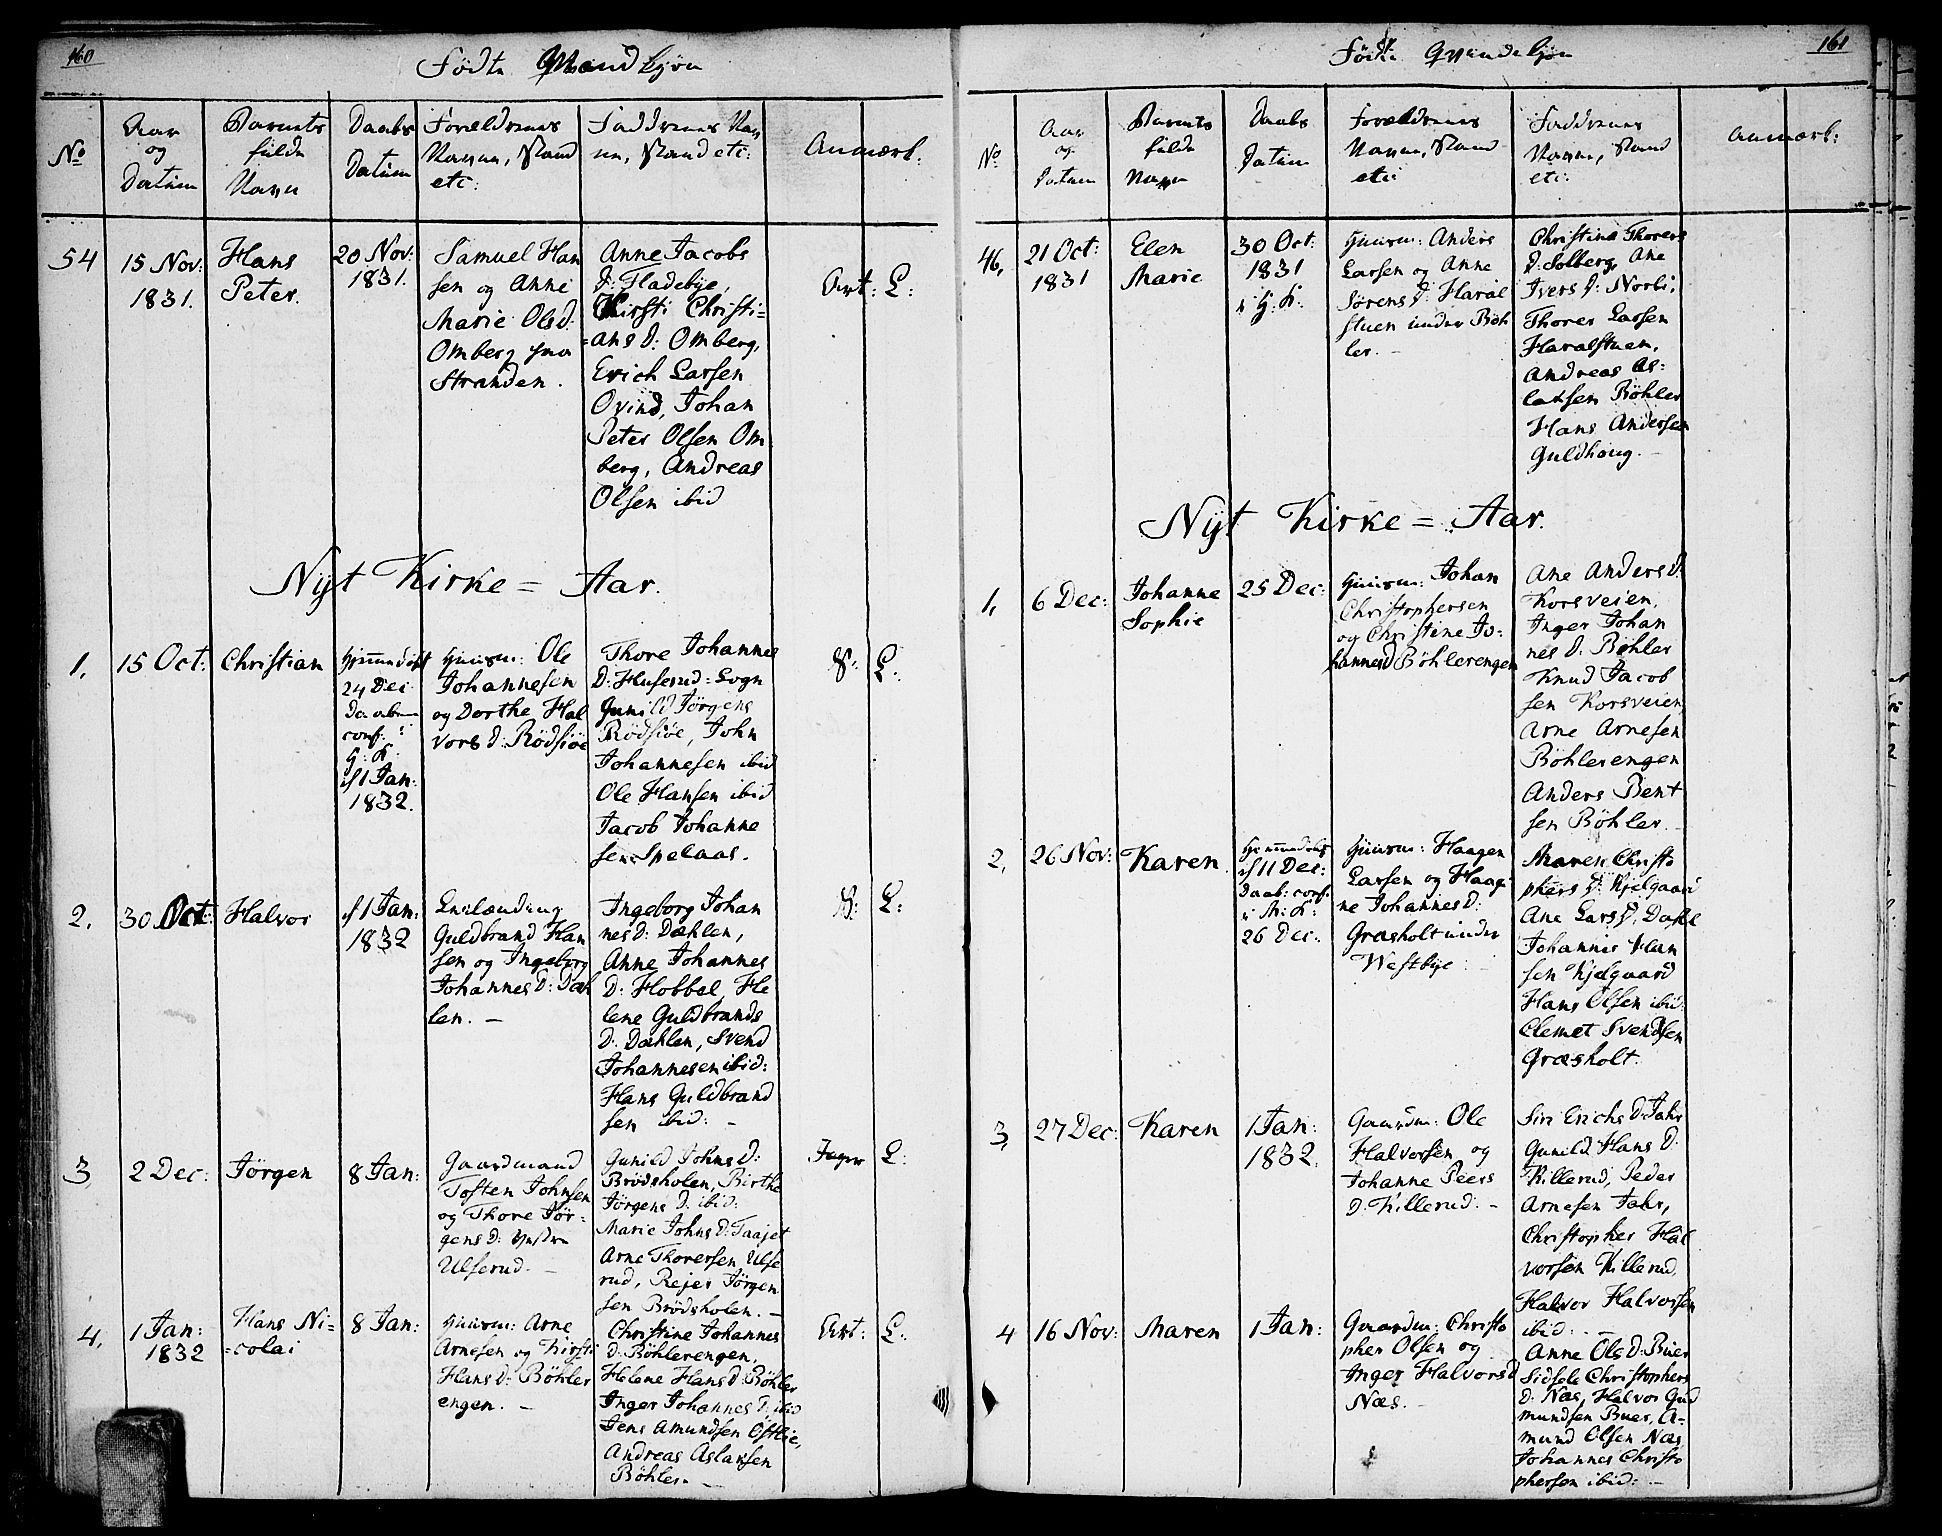 160
Födte Mandkjön
No
Aar
og
Datum
Barnets
fulde
Navn
Daabs
Datum
Forældrenes
Navne, Stand
etc:
Faddernes Nav
ne, Stand etc:
Anmærk:
54
15 Nov:
1831.
Hans
Peter.
20 Nov:
1831.
Samuel Han
sen og Anne
Marie Olsd:
Omberg
Stranden.
Anne Jacobs
D: Fladebye,
Kirsti Christi=
=ans D: Omberg,
Erich Larsen
Ovind, Johan
Peter Olsen Om
berg, Andreas
Olsen ibid
Art: L:
Nyt Kirke = Aar.
1.
15 Oct:
Christian
Hjemmedøbt
24 Dec
Daaben
conf: i
H: K
d 1 Jan:
1832.
Huusm: Ole
Johannesen
og Dorthe Hal
vors D: Rödsiöe
Thore Johannes
D: Huserud: Sogn
Gunild Jörgens
Rödsiöe, John
Johannesen ibid
Ole Hansen ibid
Jacob Johanne
sen Spelaas.
S: L:
2.
30 Oct:
Halvor
d 1 Jan:
1832
Guldbrand Han
sen og Ingeborg
Johannes D: Dæh
len. -
Ingeborg Johan
nes D: Dæhlen,
Anne Johannes
D: Hobbel, He
lene Guldbrands
D: Dæhlen, Svend
Johannesen ibid:
Hans Guldbrand
sen ibid: -
S: L:
3
2 Dec:
Jörgen
8 Jan:
Gaardmand
Tosten Johnsen
og Thore Jör=
gens D:
Ulserud. -
Gunild Johns D:
Brödsholen, Birthe
Jörgens D. ibid:
Marie Johns D: Taajet
Arne Thorersen Ulse
rud, Rejer Jörgen
sen Brödsholen. -
L:
4.
1 Jan:
1832
Hans Ni=
=colai
8 Jan:
Huusm: Arne
Arnesen og Kirsti
Hans D: Böhler
engen. -
Christine Johannes
D: Böhlerengen,
Helene Hans D: Böhler
Inger Johannes D: ibid
Jens Amundsen Östbie,
Andreas Aslaksen
Böhler. -
Art: L:
161
Födte Qvindekjön
No
Aar
og
Datum
Barnets
fulde
Navn
Daabs
Datum
Forældrenes
Navne, Stand
etc:
Faddernes
Navne, Stand
etc:
Anmærk:
46,
21 Oct:
1831
Elen
Marie
30 Oct:
1831
i H: K.
Huusm: Anders
Larsen og Anne
Sörens D: Haral
stuen under Böh
ler. -
Christine Thorers
D: Solberg, Ane
Ivers D: Norbi,
Thorer Larsen
Haralstuen,
Andreas As=
laksen Böhler
Hans Andersen
Guldhoug. -
Nyt Kirke = Aar.
1,
6 Dec:
Johanne
Sophie
25 Dec:
Huusm: Johan
Christophersen
og Christine Jo=
hannesD Böhlerengen
Ane Anders D:
Korsveien,
Inger Johan
nes D: Böhler
Knud Jacob
sen Korsveien
Arne Arnesen
Böhlerengen
Anders Bent
sen Böhler. -
2,
26 Nov:
Karen.
Hjemmedøbt
d 11 Dec:
Daab: conf.
i K:
26 Dec:
Huusm: Haagen
Larsen og Haagi
ne Johannes D:
Græsholt under
Westbye: -
Maren Christo
phers D: Kjelgaard
Ane Lars D:
Johannes Han
sen Kjelgaard
Hans Olsen ibid:
Clemet Svendsen
Græsholt.
3,
27 Dec:
Karen
1 Jan:
1832.
Gaardm: Ole
Halvorsen og
Johanne Peers
D: Killerud: -
Siri Erichs D: Jahr
Gunild Hans D:
Killerud, Peder
Arnesen Jahr,
Christopher Hal
vorsen Killerud,
Halvor Halvorsen
ibid: -
4
16 Nov:
Maren
1 Jan:
Gaardm: Christo
pher Olsen og
Inger Halvors D
Næs. -
Anne Ols D: Buer
Sidsele Christophers
D: Næs, Halvor Gud
mundsen Buer, A=
mund Olsen Næs
Johannes Christo
phersen ibid: -